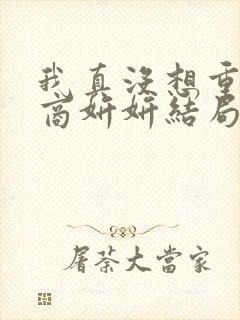 我真沒想重
商妍妍結局
屠茶大當家